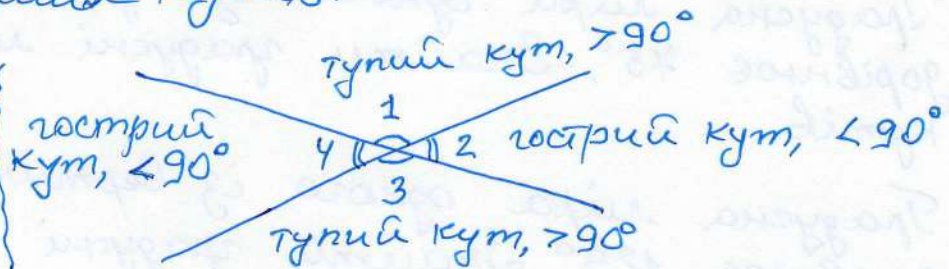 тупий кут, >90°
1
гострий
кут, <90°
4
2
гострий кут, <90°
3
тупий кут, >90°